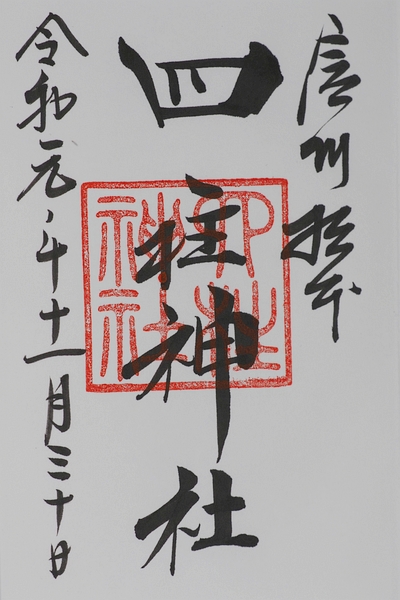 信州松本
四柱神社
四柱神社
令和元年十一月三十日